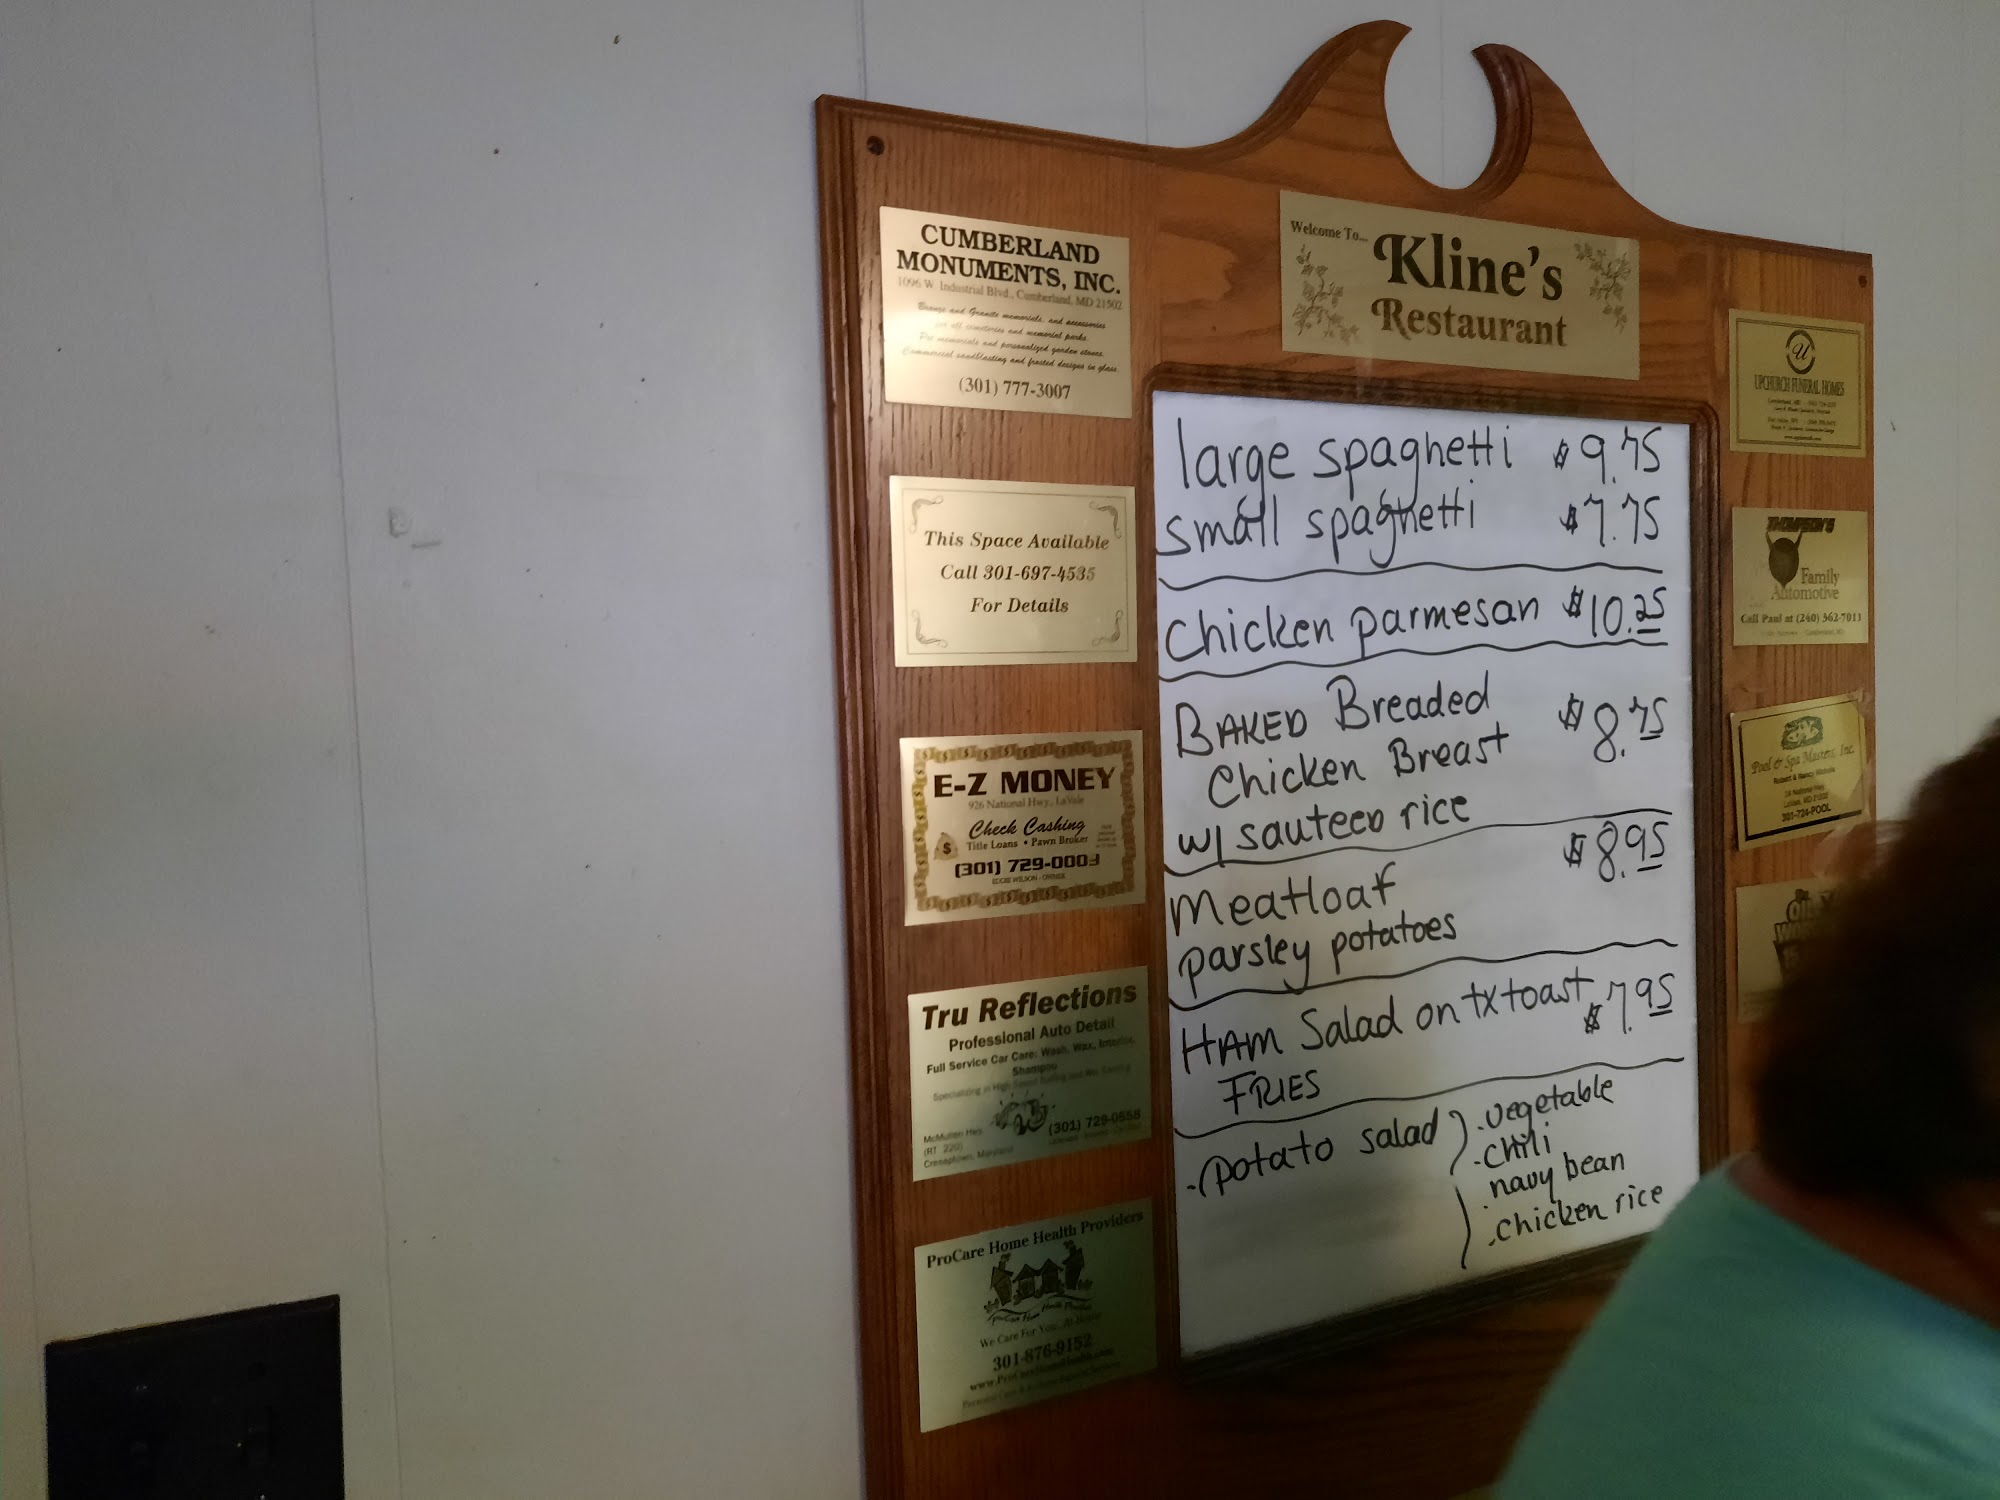 CUMBERLAND
MONUMENTS, INC.
1096 W. Industrial Blvd., Cumberland, MD 21502
Bronze and Granite memorials, and accessories
for all cemeteries and memorial parks.
Pet memorials and personalized garden stones.
Commercial sandblasting and frosted designs in glass.
(301) 777-3007
This Space Available
Call 301-697-4535
For Details
E-Z MONEY
926 National Hwy., LaVale
Check Cashing
Title Loans • Pawn Broker
(301) 729-0003
EDDIE WILSON - OWNER
Tru Reflections
Professional Auto Detail
Full Service Car Care: Wash, Wax, Interior,
Shampoo
Specializing in High Speed Buffing and Wet Sanding
McMullen Hwy.
(RT 220)
Cresaptown, Maryland
(301) 729-0558
ProCare Home Health Providers
We Care For You...At Home
301-876-9152
www.ProCareHomeHealth.com
Welcome To...
Kline's
Restaurant
large spaghetti $9.75
small spaghetti $7.75
chicken parmesan $10.25
BAKED Breaded $8.75
Chicken Breast
w/ sauteed rice
Meatloaf $8.95
parsley potatoes
HAM Salad on tx toast $7.95
FRIES
. potato salad
. vegetable
. chili
. navy bean
. chicken rice
UPCHURCH FUNERAL HOMES
THOMPSON'S
Family
Automotive
Call Paul at (240) 362-7011
Pool & Spa Masters, Inc.
301-724-POOL